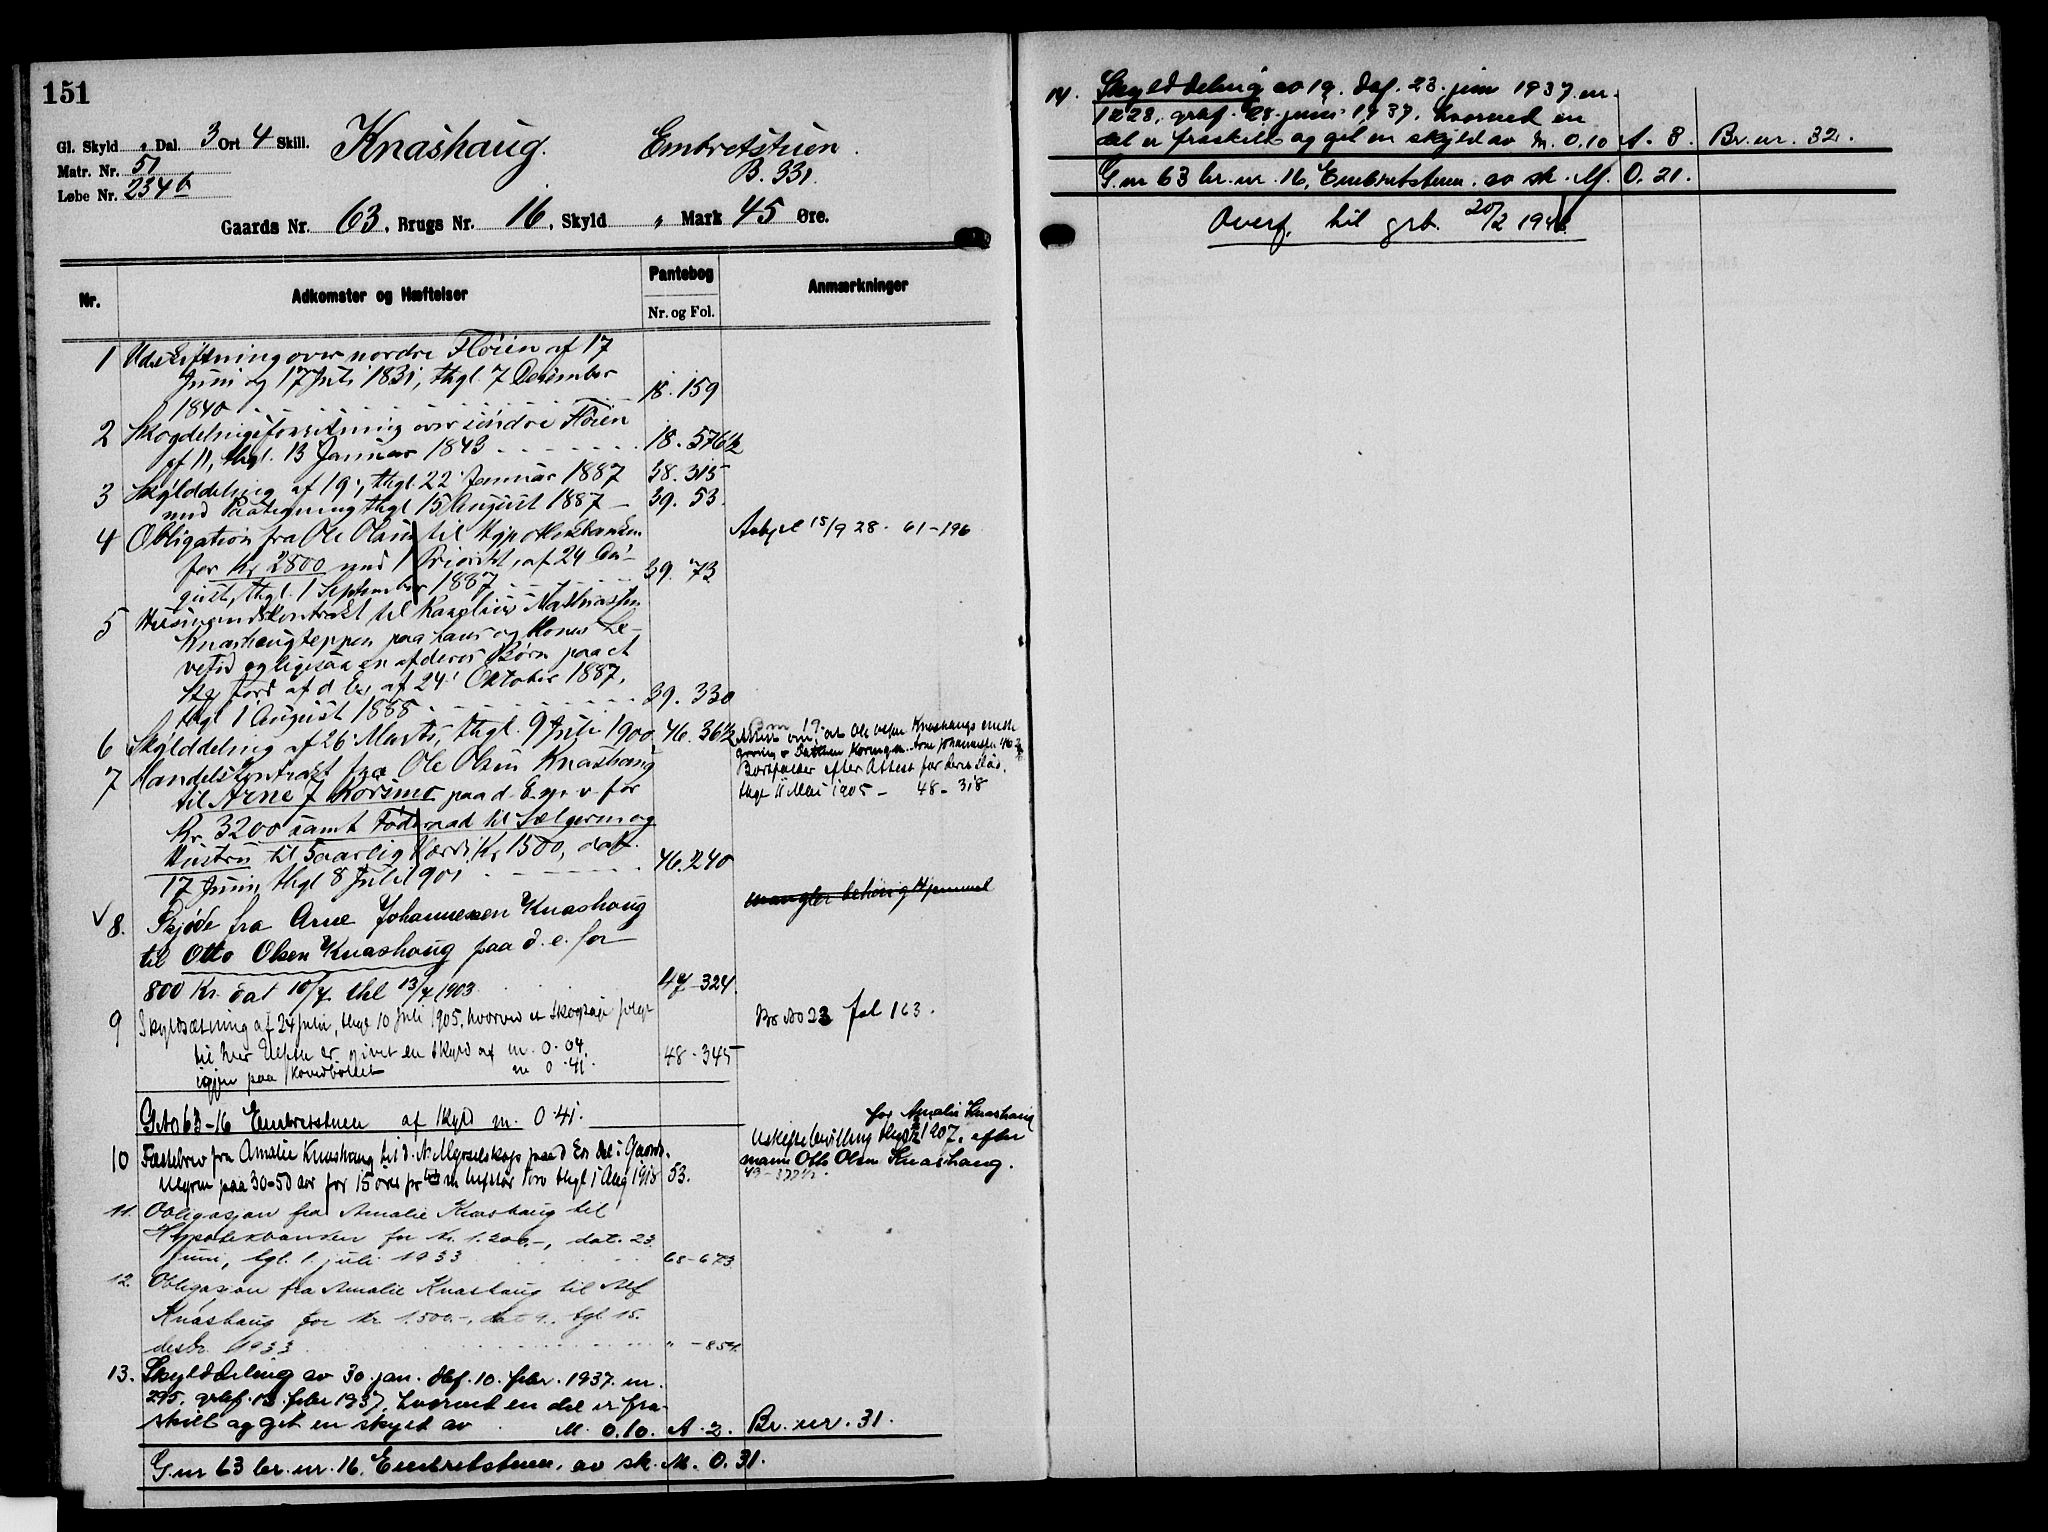 151
Gl. Skyld „ Dal. 3 Ort 4 Skill. Knashaug. Embretstuen.
Matr. Nr. 51 B. 331.
Løbe Nr. 234b
Gaards Nr. 63, Brugs Nr. 16, Skyld „ Mark 45 Øre.
Nr. Adkomster og Hæftelser Pantebog Anmærkninger
Nr. og Fol.
1 Udskiftning over nordre Fløien af 17
Juni og 17 Juli 1831, thgl. 7 December
1840 18. 159
2 Skogdelingsforretning over söndre Fløien
af 11, thgl. 13 Januar 1843 18. 576½
3 Skylddeling af 19, thgl. 22 Januar 1887 38. 315
med Paategning thgl 15 August 1887 39. 53.
4 Obligation fra Ole Olsen til Hypothekbanken Avlyst 15/9 28. 61-196
for Kr 2800 med 1 Prioritet, af 24 Au-
gust, thgl. 1 September 1887 39. 73
5 Husmandskontrakt til Mathiassen
Knashaugteppen paa hans og Kones Le-
vetid og ligesaa en af deres Børn paa et
Stk Jord af d. En. af 24 Oktober 1887,
thgl 1 August 1888 39. 330
6 Skylddeling af 26 Marts, thgl. 9 Juli 1900 46. 36½
7 Handelskontrakt fra Ole Olsen Knashaug
til Arne J Korsmo paa d. Egn. v. for
Kr. 3200 samt Föderaad til Sælgeren og
Hustru til 5aarlig Værdi Kr 1500, dat.
17 Juni, thgl 8 Juli 1901 46. 240
Bortfalder efter Attest
thgl 11 Mai 1905 - 48-318
mangler behörig Hjemmel
✓ 8. Skjøde fra Arne Johannessen Knashaug
til Otto Olsen Knashaug paa d. e. for
800 Kr. dat 10/7 thl 13/7 1903 47-324.
9 Skyldsætning af 24 Juni, thgl 10 Juli 1905, hvorved et Skogstykke Br No 23 fol 163.
er givet en Skyld af m. 0.04. 48-345
igjen paa Hovedbøllet m 0.41.
G No 63-16 Embretstuen af Skyld m. 0.41.
for Amalie Knashaug
Uskiftebevilling thgl 1907, efter
mann Otto Olsen Knashaug.
10 Fæstebrev fra Amalie Knashaug til d. N. Myrselskap paa d. En. del i Gaards
Myren paa 30-50 aar for 15 øre pr thgl 1 Aug 1918 53.
11. Obligasjon fra Amalie Knashaug til
Hypotekbanken for kr. 1.200.-, dat. 23.
juni, tgl. 1. juli 1933 68-673
12. Obligasjon fra Amalie Knashaug til Alf
Knashaug for kr 1.500.-, dat 9., tgl. 15.
desbr. 1933 " -854.
13. Skylddeling av 30. jan. dbf. 10. febr. 1937. nr.
295, grbf. 13. febr 1937, hvorved en del er fra-
skilt og git en skyld av M. 0.10. A-2. Br. nr. 31.
G.nr 63 br. nr. 16. Embretstuen. av sk. M. 0.31.
14. Skylddeling av 19. dbf. 23. juni 1937. nr.
1228, grbf. 28. juni 1937, hvorved en
del er fraskilt og git en skyld av M. 0.10 A-8. Br. nr. 32.
G.nr 63 br. nr. 16, Embretstuen. av sk. M. 0.21.
Overf. til grb. 20/2 194